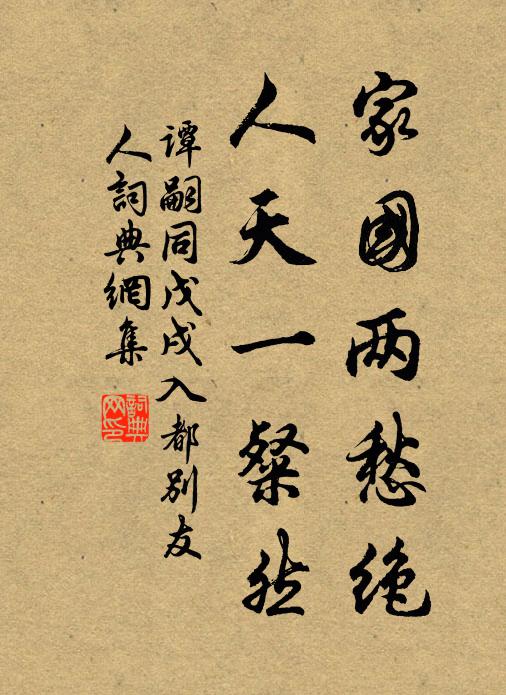 家國两愁绝
人天一粲然
譚嗣同戊戌入都别友
人詞典網集
詞典网印